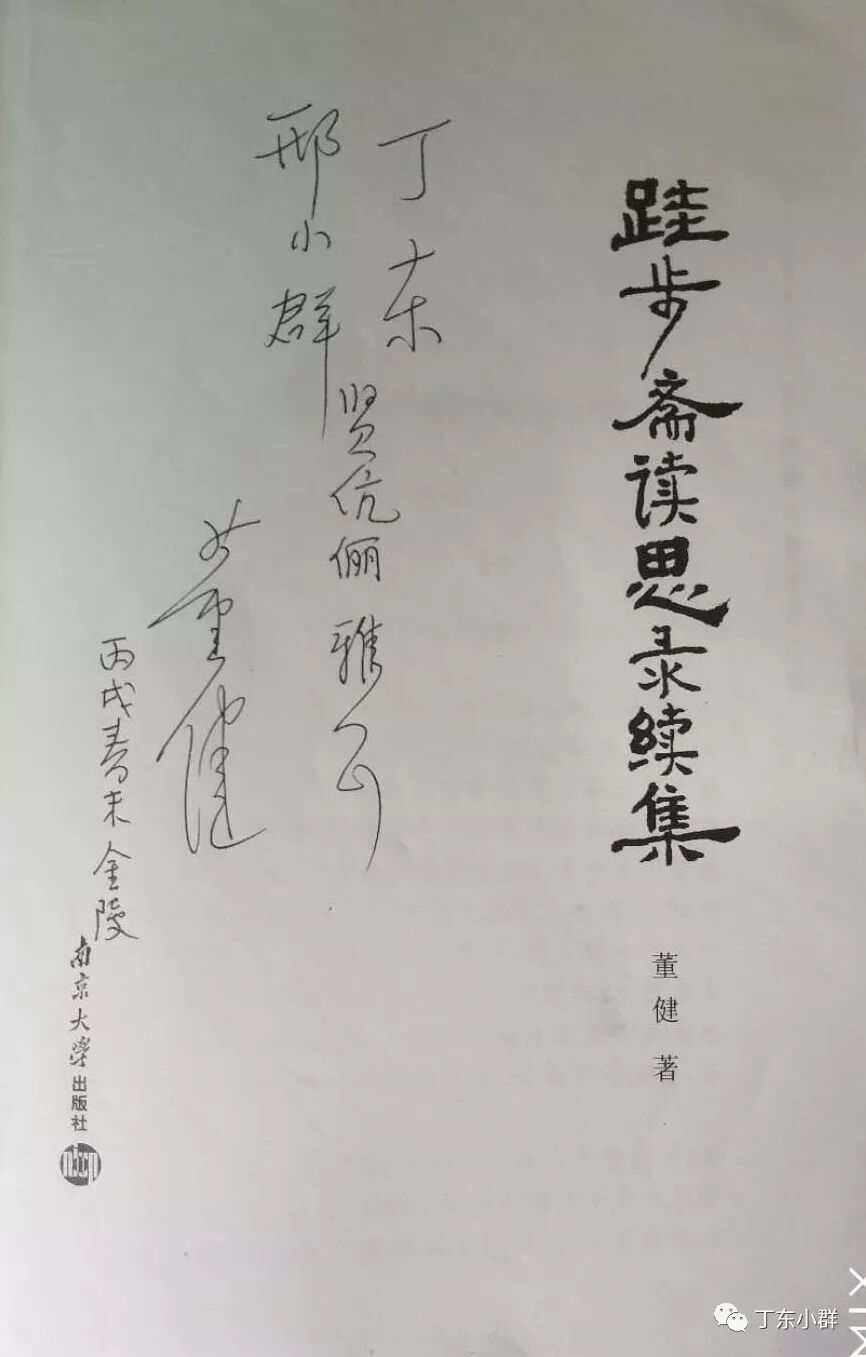 跬步斋读思录续集
董健 著
丁东
邢小群
贤伉俪雅
董健
丙戌春末金陵
南京大学出版社
丁东小群